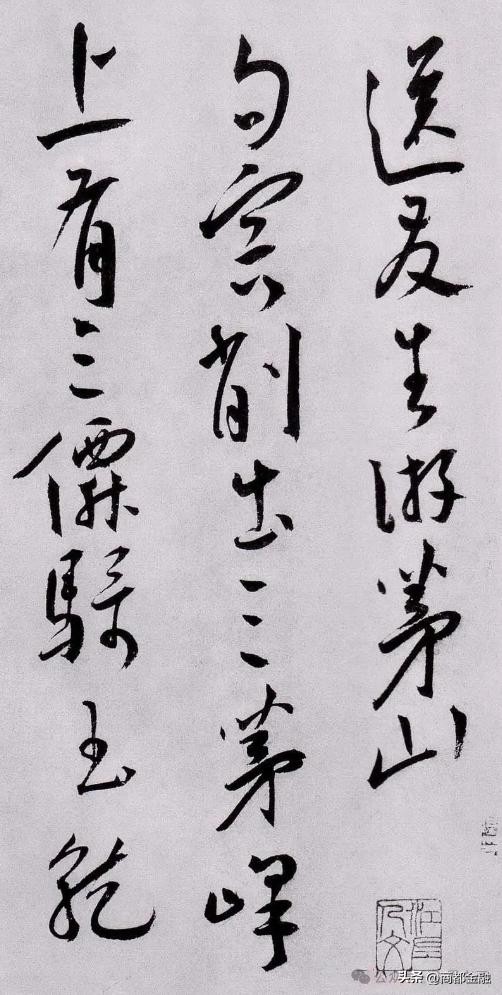 送友生游茅山
句容削出三茅峰
上有三僊騎玉龍
头条 @商都金融